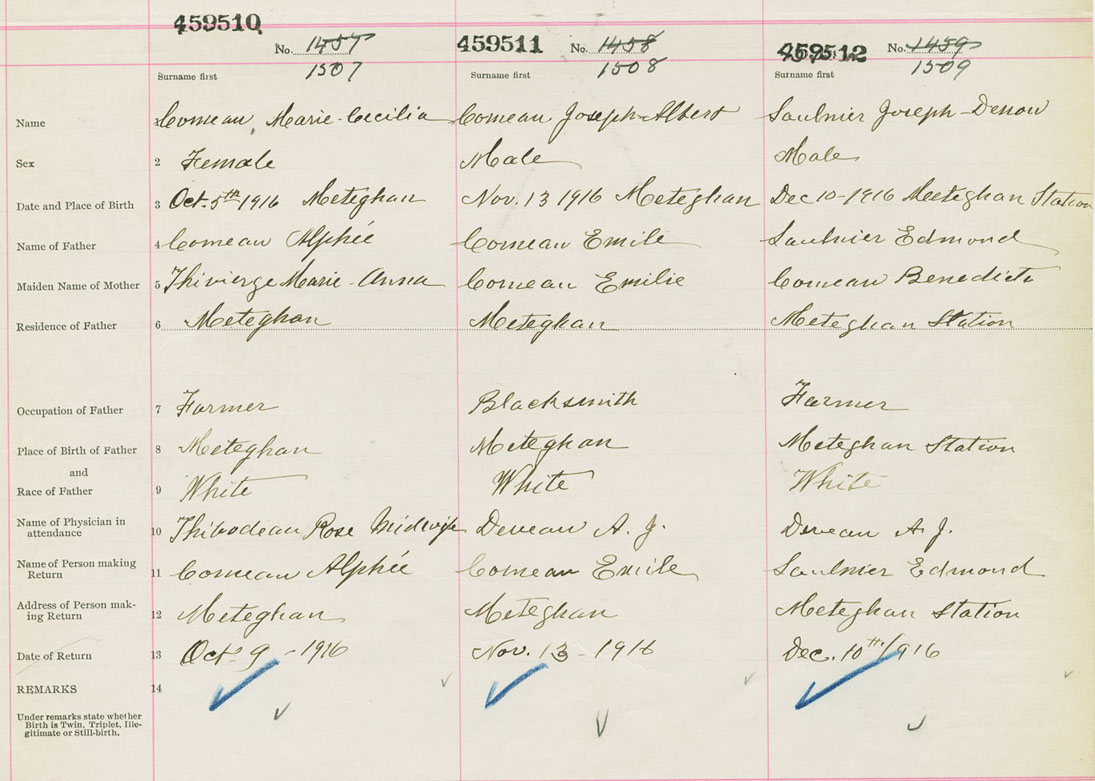 459510 459511 459512
No. 1457 No. 1458 No. 1459
Surname first 1507 Surname first 1508 Surname first 1509
Name 1 Comeau, Marie-Cecilia Comeau Joseph-Albert Saulnier Joseph-
Sex 2 Female Male Male
Date and Place of Birth 3 Oct. 5th 1916 Meteghan Nov. 13 1916 Meteghan Dec 10-1916 Meeteghan Station
Name of Father 4 Comeau Alphée Comeau Emile Saulnier Edmond
Maiden Name of Mother 5 Thivierge Marie-Anna Comeau Emilie Comeau Benedicte
Residence of Father 6 Meteghan Meteghan Meteghan Station
Occupation of Father 7 Farmer Blacksmith Farmer
Place of Birth of Father 8 Meteghan Meteghan Meteghan Station
and
Race of Father 9 White White White
Name of Physician in
attendance 10 Thibodeau Rose Midwife Deveau A. J. Deveau A J.
Name of Person making
Return 11 Comeau Alphée Comeau Emile Saulnier Edmond
Address of Person mak-
ing Return 12 Meteghan Meteghan Meteghan Station
Date of Return 13 Oct. 9 - 1916 Nov. 13 - 1916 Dec. 10th/916
REMARKS 14
Under remarks state whether
Birth is Twin, Triplet, Ille-
gitimate or Still-birth.